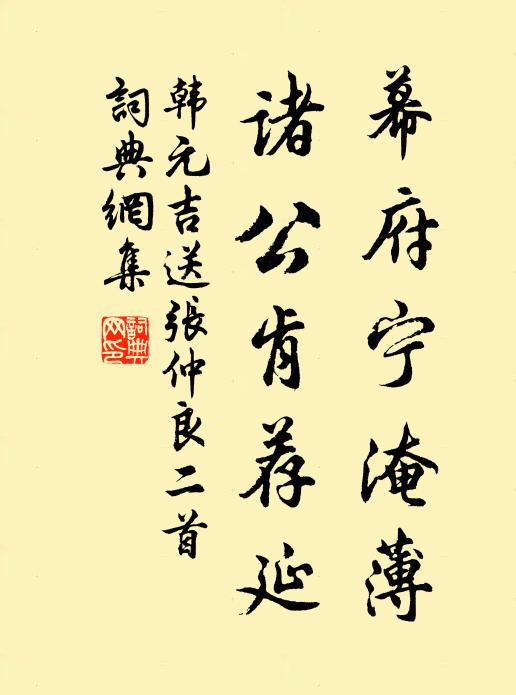 幕府宁淹薄
诸公肯荐延
韩元吉送張仲良二首
詞典網集
詞典网印